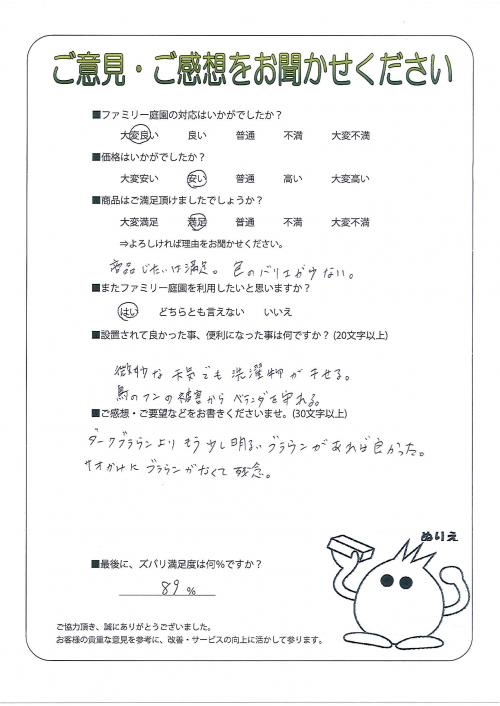 ご意見・ご感想をお聞かせください
■ファミリー庭園の対応はいかがでしたか？
大変良い 良い 普通 不満 大変不満
■価格はいかがでしたか？
大変安い 安い 普通 高い 大変高い
■商品はご満足頂けましたでしょうか？
大変満足 満足 普通 不満 大変不満
⇒よろしければ理由をお聞かせください。
商品じたいは満足。色のバリエが少ない。
■またファミリー庭園を利用したいと思いますか？
はい どちらとも言えない いいえ
■設置されて良かった事、便利になった事は何ですか？(20文字以上)
微妙な天気でも洗濯物が干せる。
鳥のフンの被害からベランダを守れる。
■ご感想・ご要望などをお書きくださいませ。(30文字以上)
ダークブラウンよりもう少し明るいブラウンがあれば良かった。
サオかけにブラウンがなくて残念。
ぬりえ
■最後に、ズバリ満足度は何%ですか？
89 %
ご協力頂き、誠にありがとうございました。
お客様の貴重な意見を参考に、改善・サービスの向上に活かして参ります。